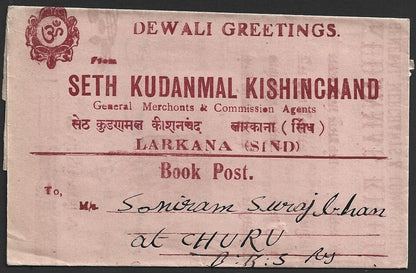 ॐ
DEWALI GREETINGS.
From
SETH KUDANMAL KISHINCHAND
General Merchants & Commission Agents
सेठ कुडणमल कीशनचंद लारकाना (सिंध)
LARKANA (SIND)
Book Post.
To,
M/s. Soniram Surajbhan
at CHURU
B.K.S Ry